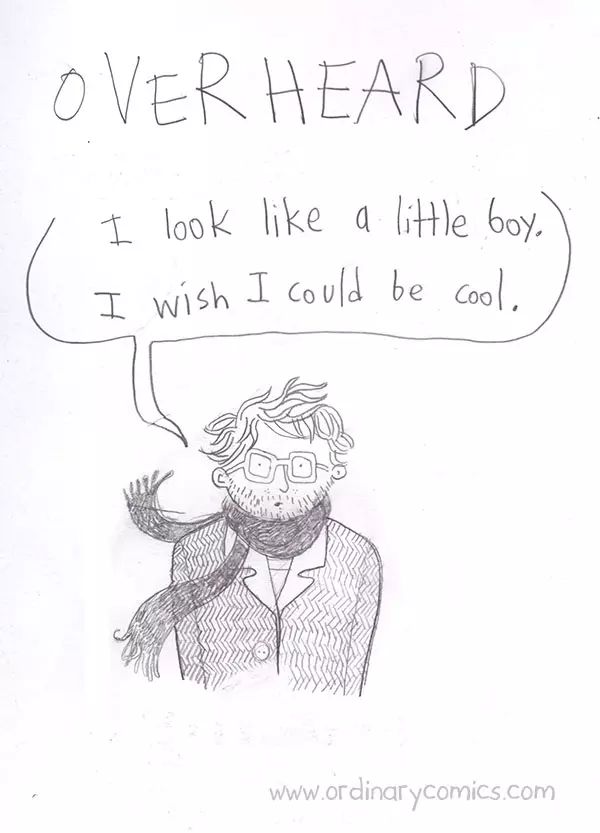 OVERHEARD
I look like a little boy.
I wish I could be cool.
www.ordinarycomics.com